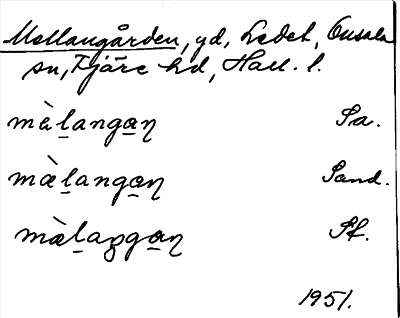 Mellangården, gd, Ledet, Onsala
sn, Fjäre hd, Hall. l.
mæ̀l̠anga̠ꞃ Sa.
mæ̀l̠anga̠ꞃ Sand.
mæ̀l̠aŋga̠ꞃ Sf.
1951.